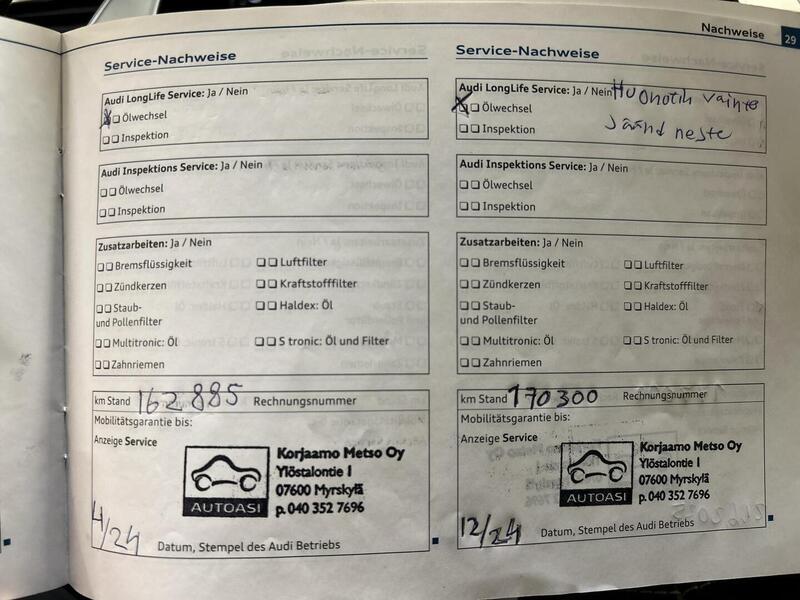 Nachweise 29
Service-Nachweise
Audi LongLife Service: Ja / Nein
Ölwechsel
Inspektion
Audi Inspektions Service: Ja / Nein
Ölwechsel
Inspektion
Zusatzarbeiten: Ja / Nein
Bremsflüssigkeit Luftfilter
Zündkerzen Kraftstofffilter
Staub- Haldex: Öl
und Pollenfilter
Multitronic: Öl S tronic: Öl und Filter
Zahnriemen
km Stand 162885 Rechnungsnummer
Mobilitätsgarantie bis:
Anzeige Service
Korjaamo Metso Oy
Ylöstalontie 1
07600 Myrskylä
p. 040 352 7696
AUTOASI
4/24
Datum, Stempel des Audi Betriebs
Service-Nachweise
Audi LongLife Service: Ja / Nein
Ölwechsel
Inspektion
neste
Audi Inspektions Service: Ja / Nein
Ölwechsel
Inspektion
Zusatzarbeiten: Ja / Nein
Bremsflüssigkeit Luftfilter
Zündkerzen Kraftstofffilter
Staub- Haldex: Öl
und Pollenfilter
Multitronic: Öl S tronic: Öl und Filter
Zahnriemen
km Stand 170300 Rechnungsnummer
Mobilitätsgarantie bis:
Anzeige Service
Korjaamo Metso Oy
Ylöstalontie 1
07600 Myrskylä
p. 040 352 7696
AUTOASI
12/24
Datum, Stempel des Audi Betriebs